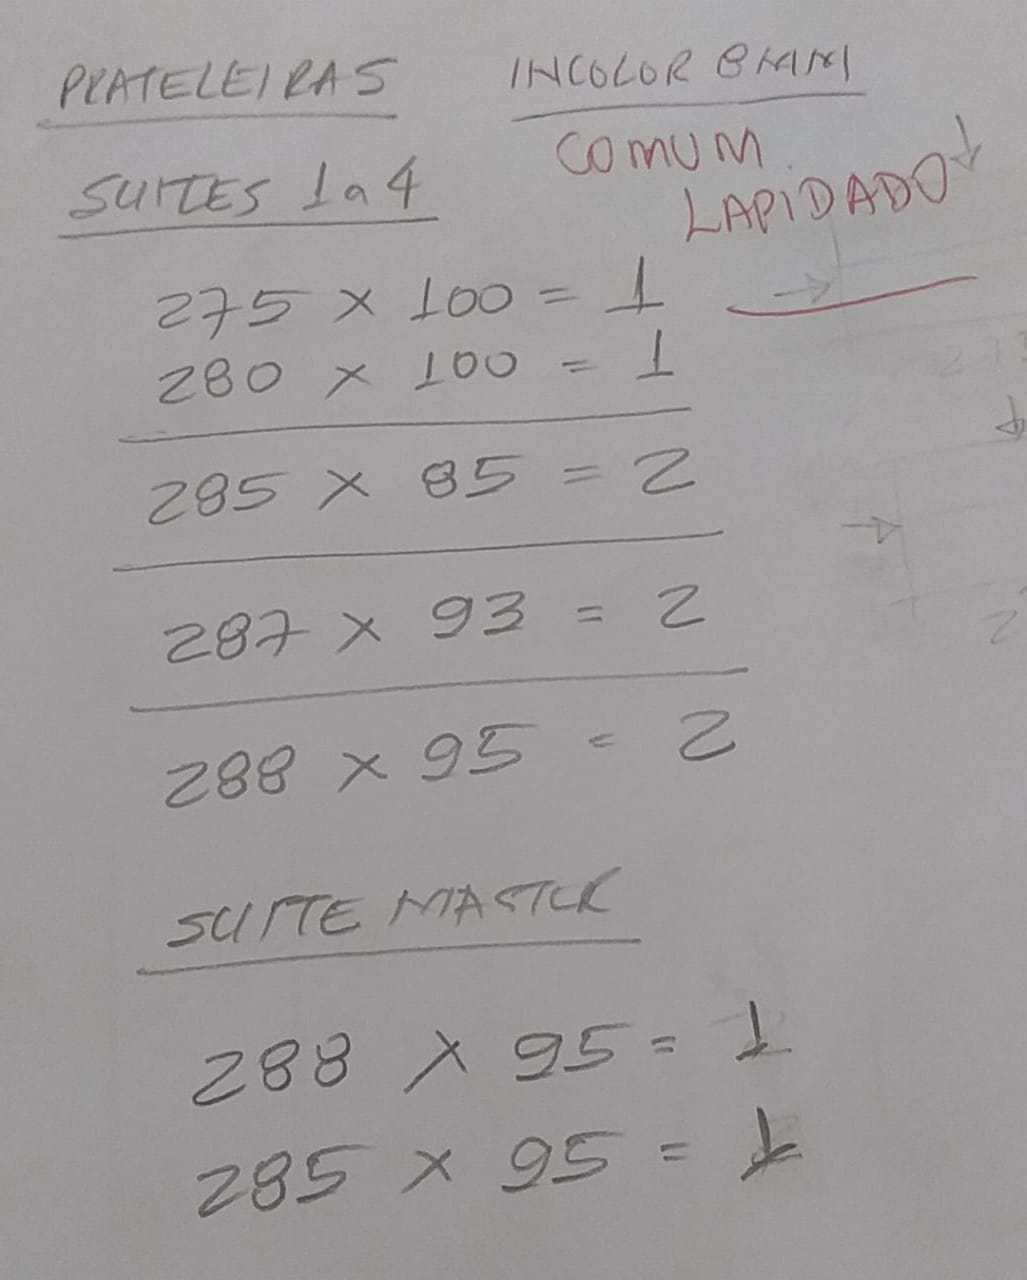 PRATELEIRAS INCOLOR 8MM
COMUM
LAPIDADO
SUITES 1a4
275 x 100 = 1
280 x 100 = 1
285 x 85 = 2
287 x 93 = 2
288 x 95 = 2
SUITE MASTER
288 x 95 = 1
285 x 95 = 1